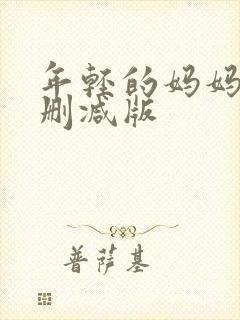 年轻的妈妈
删减版
普萨基